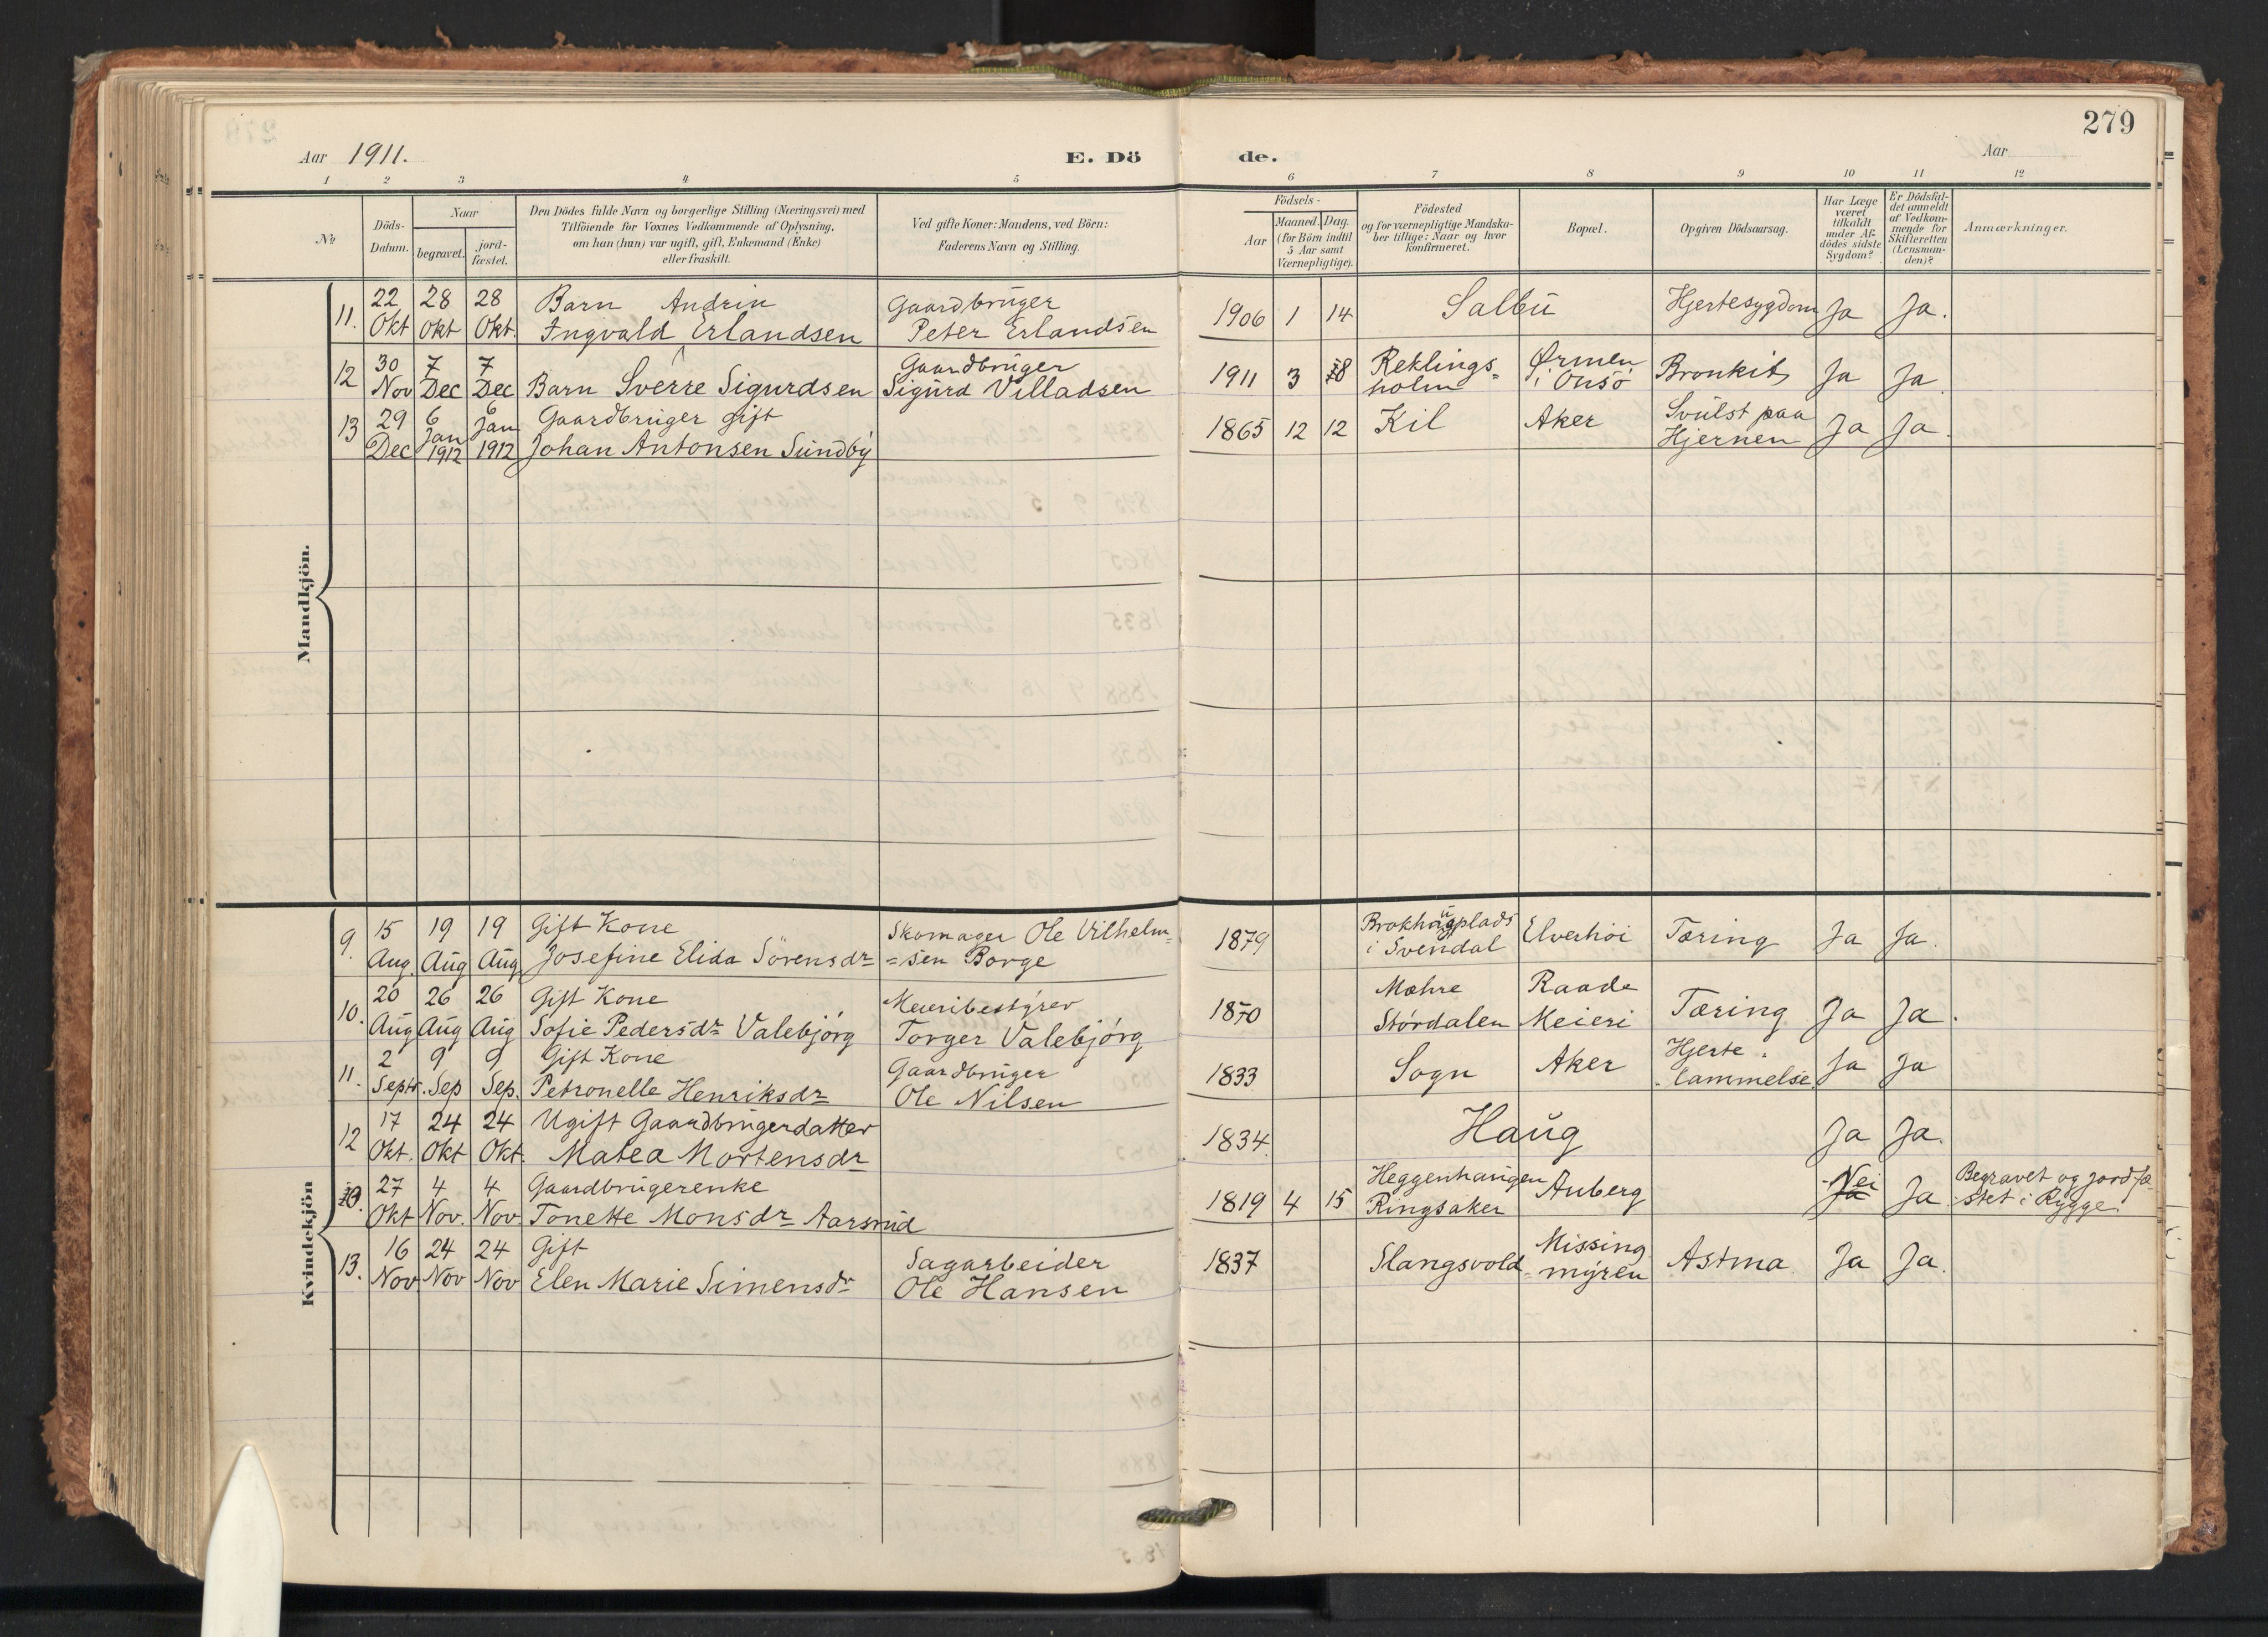 279
Aar 1911.
E. Dö de.
Aar
1 2 3 4 5 6 7 8 9 10 11 12
№
Döds-
Datum.
Naar
begravet.
jord-
fæstet.
Den Dödes fulde Navn og borgerlige Stilling (Næringsvei) med
Tilföiende for Voxnes Vedkommende af Oplysning,
om han (hun) var ugift, gift, Enkemand (Enke)
eller fraskilt.
Ved gifte Koner: Mandens, ved Börn:
Faderens Navn og Stilling.
Födsels-
Aar
Maaned. Dag.
(for Börn indtil
5 Aar samt
Værnepligtige).
Födested
og for værnepligtige Mandska-
ber tillige: Naar og hvor
konfirmeret.
Bopæl.
Opgiven Dödsaarsag.
Har Læge
været
tilkaldt
under Af-
dödes sidste
Sygdom?
Er Dödsfal-
det anmeldt
af Vedkom-
mende for
Skifteretten
(Lensman-
den)?
Anmærkninger.
Mandkjön.
22 28 28 Barn Andrin Gaardbruger Hjertesygdom
11. Okt Okt Okt. Ingvald Erlandsen Peter Erlandsen 1906 1 14 Salbu Ja Ja.
30 7 7 Gaardbruger Reklings- Ørmen
12 Nov Dec Dec Barn Sverre Sigurdsen Sigurd Villadsen 1911 3 8 holm i Onsö Bronkit Ja Ja
29 6 6 Gaardbruger gift Svulst paa
13 Dec Jan 1912 Jan 1912 Johan Antonsen Sundby 1865 12 12 Kil Aker Hjernen Ja Ja
Kvindekjön
15 19 19 Gift Kone Skomager Ole Vilhelm- Brokhugplads
9. Aug. Aug Aug Josefine Elida Sörensdr =sen Borge 1879 i Svendal Elverhöi Tæring Ja Ja.
20 26 26 Gift Kone Meieribestyrer Mæhre Raade
10. Aug Aug Aug Sofie Pedersdr Valebjörg Torger Valebjörg 1870 Stördalen Meieri Tæring Ja Ja.
2 9 9 Gift Kone Gaardbruger Hjerte-
11. Septr. Sep Sep. Petronelle Henriksdr Ole Nilsen 1833 Sogn Aker lammelse Ja Ja
17 24 24 Ugift Gaardbrugerdatter
12 Okt. Okt Okt. Matea Mortensdr 1834. Haug Ja Ja.
27 4 4 Gaardbrugerenke Heggenhaugen Nei Begravet og jordfæ-
Okt Nov. Nov Tonette Monsdr Aarsrud 1819 4 15 Ringsaker Auberg Ja Ja stet i Rygge.
16 24 24 Gift Sagarbeider Missing
13. Nov Nov Nov Elen Marie Simensdr Ole Hansen 1837 Slangsvold myren Astma Ja Ja.